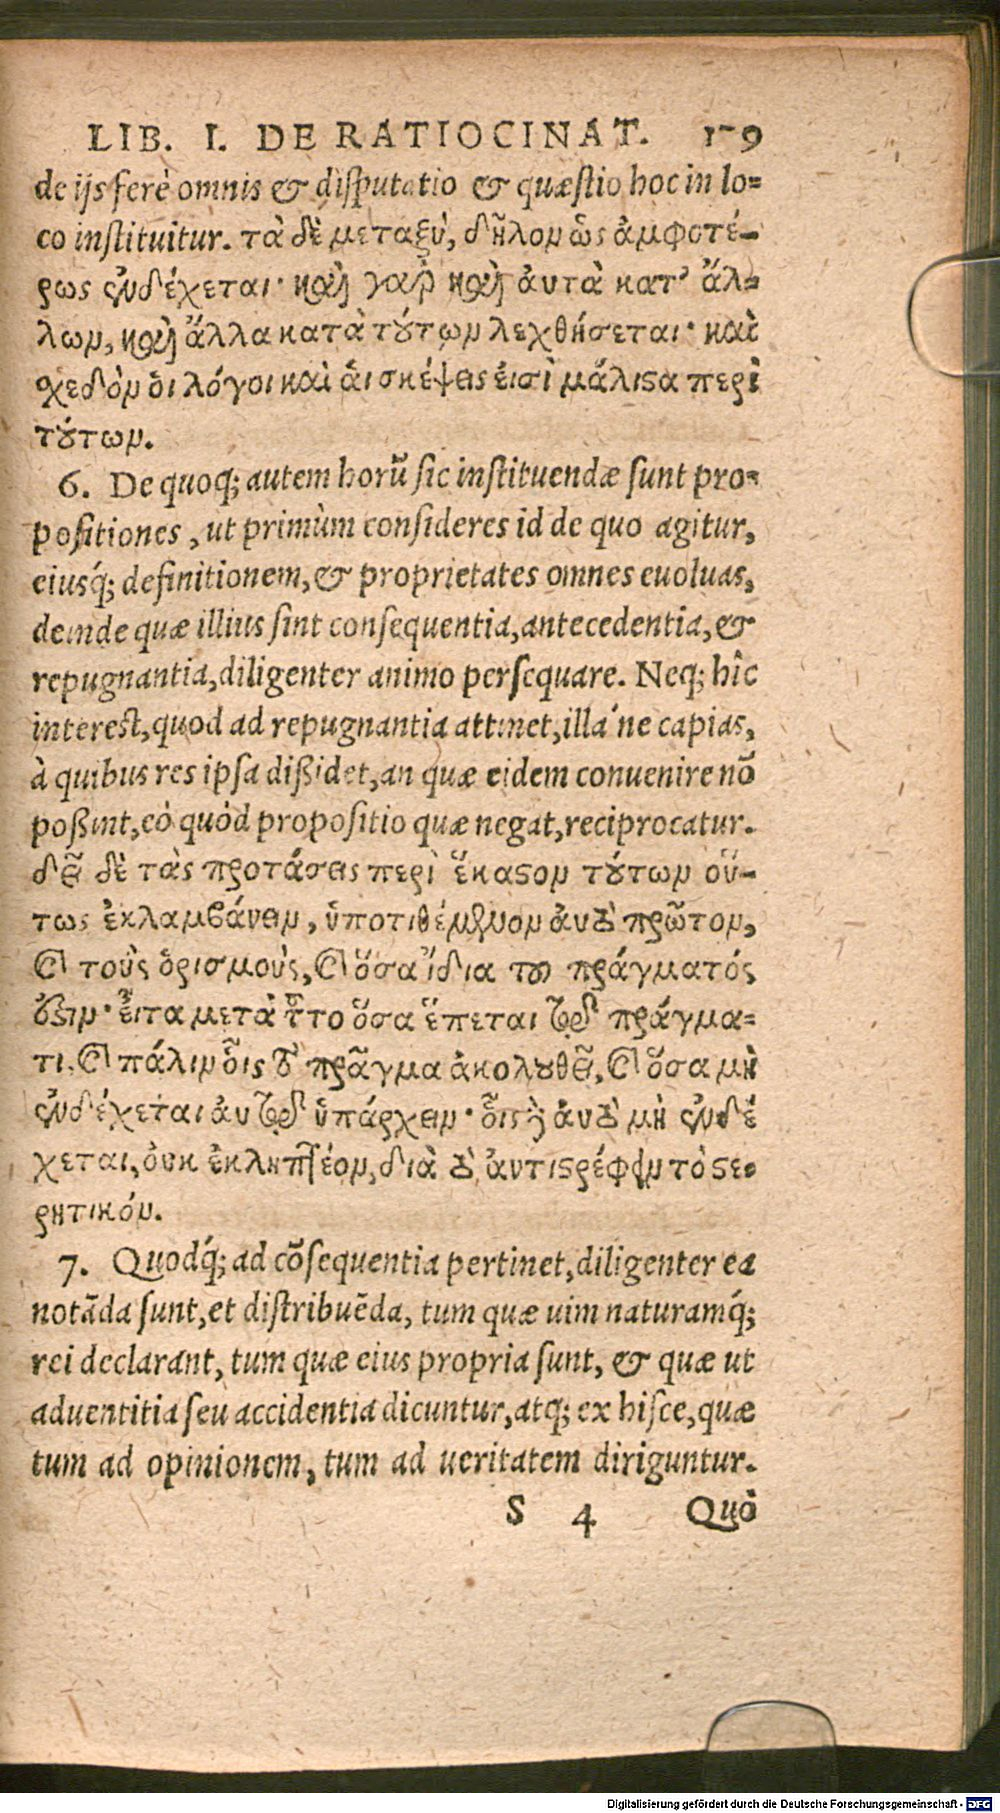 LIB. I. DE RATIOCINAT. 179
de ijs ferè omnis & disputatio & quæstio hoc in lo=
co instituitur. τὰ δὲ μεταξὺ, δῆλον ὡς ἀμφοτέ-
ρως ἐνδέχεται· καὶ γὰρ καὶ αὐτὰ κατ' ἄλ=
λων, καὶ ἄλλα κατὰ τούτων λεχθήσεται· καὶ
σχεδὸν ὁι λόγοι καὶ ἁι σκέψεις ἐισὶ μάλιστα περὶ
τούτων.
6. De quoq; autem horũ sic instituendæ sunt pro=
positiones, ut primùm consideres id de quo agitur,
eiusq́; definitionem, & proprietates omnes euoluas,
deinde quæ illius sint consequentia, antecedentia, &
repugnantia, diligenter animo persequare. Neq; hîc
interest, quod ad repugnantia attinet, illa´ne capias,
à quibus res ipsa dißidet, an quæ eidem conuenire nõ
poßint, eò quòd propositio quæ negat, reciprocatur.
δεῖ δὲ τὰς προτάσεις περὶ ἕκαστον τούτων οὕ-
τως ἐκλαμβάνειν, ὑποτιθέμενον ἀυτὸ πρῶτον,
καὶ τοὺς ὁρισμοὺς, καὶ ὅσα ἴδια τοῦ πράγματός
ἐστιν· εἶτα μετὰ τοῦτο ὅσα ἕπεται τῷ πράγμα=
τι, καὶ πάλιν οἷς τὸ πρᾶγμα ἀκολουθεῖ, καὶ ὅσα μὴ
ἐνδέχεται αὐτῷ ὑπάρχειν· οἷς δὲ ἀυτὸ μὴ ἐνδέ
χεται, ὀυκ ἐκληπτέον, διὰ τὸ ἀντιστρέφειν τὸ στε-
ρητικόν.
7. Quodq́; ad cõsequentia pertinet, diligenter ea
notãda sunt, et distribuẽda, tum quæ uim naturamq́;
rei declarant, tum quæ eius propria sunt, & quæ ut
aduentitia seu accidentia dicuntur, atq; ex hisce, quæ
tum ad opinionem, tum ad ueritatem diriguntur.
S 4 Quò
Digitalisierung gefördert durch die Deutsche Forschungsgemeinschaft - DFG